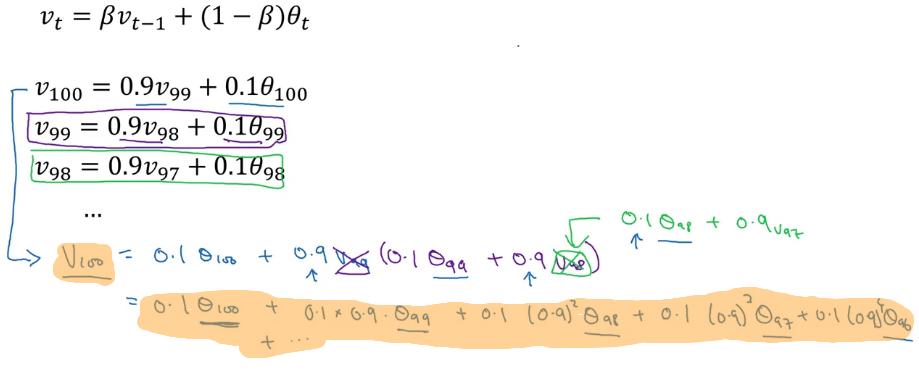 vₜ = βvₜ₋₁ + (1 − β)θₜ
v₁₀₀ = 0.9v₉₉ + 0.1θ₁₀₀
v₉₉ = 0.9v₉₈ + 0.1θ₉₉
v₉₈ = 0.9v₉₇ + 0.1θ₉₈
...
0.1 θ₉₈ + 0.9 v₉₇
V₁₀₀ = 0.1 θ₁₀₀ + 0.9 v₉₉ (0.1 θ₉₉ + 0.9 v₉₈)
= 0.1 θ₁₀₀ + 0.1 × 0.9 · θ₉₉ + 0.1 (0.9)² θ₉₈ + 0.1 (0.9)³ θ₉₇ + 0.1 (0.9)⁴ θ₉₆
+ ...